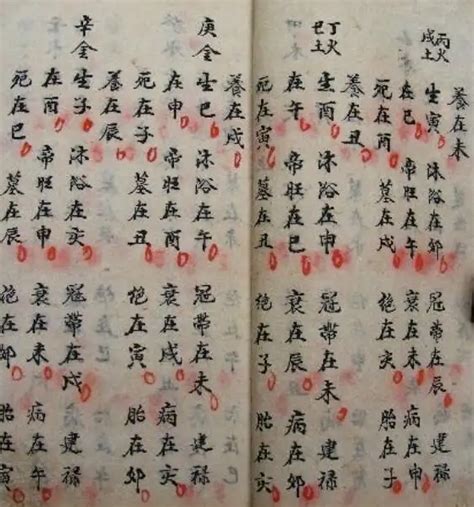 養在未
丙火
戊土
生寅 沐浴在卯 冠帶在辰 建禄
在巳 帝旺在午 衰在未 病在申
死在酉 墓在戌 绝在亥 胎在子
養在丑
丁火
巳土
生酉 沐浴在申 冠帶在未 建禄
在午 帝旺在巳 衰在辰 病在卯
死在寅 墓在丑 绝在子 胎在亥
養在戌
庚金生巳 沐浴在午 冠帶在未 建禄
在申 帝旺在酉 衰在戌 病在亥
死在子 墓在丑 绝在寅 胎在卯
養在辰
辛金生子 沐浴在亥 冠帶在戌 建禄
在酉 帝旺在申 衰在未 病在午
死在巳 墓在辰 绝在卯 胎在寅